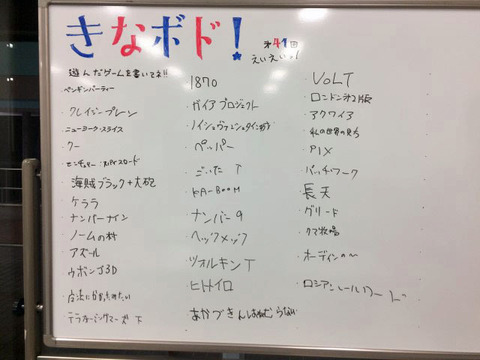 きなボド!
第41回
えいえいっ!
遊んだゲームを書いてネ!!
ペンギンパーティー
クレイジープレーン
ニューヨーク・スライス
クー
センチュリー:スパイスロード
海賊ブラック+大砲
ケララ
ナンバーナイン
ノームの村
アズール
ウボンゴ3D
テラフォーミングマーズ
1870
ガイアプロジェクト
ノイシュヴァンシュタイン城
ペッパー
ごいた T
KA-BOOM
ナンバー9
ヘックメック
ツォルキン T
ヒトイロ
あかずきんはねむらない
VOLT
ロンドン 第2版
アクワイア
私の世界の見方
PIX
パッチワーク
長天
グリード
クマ牧場
オーディンの〜
ロシアンレールロード